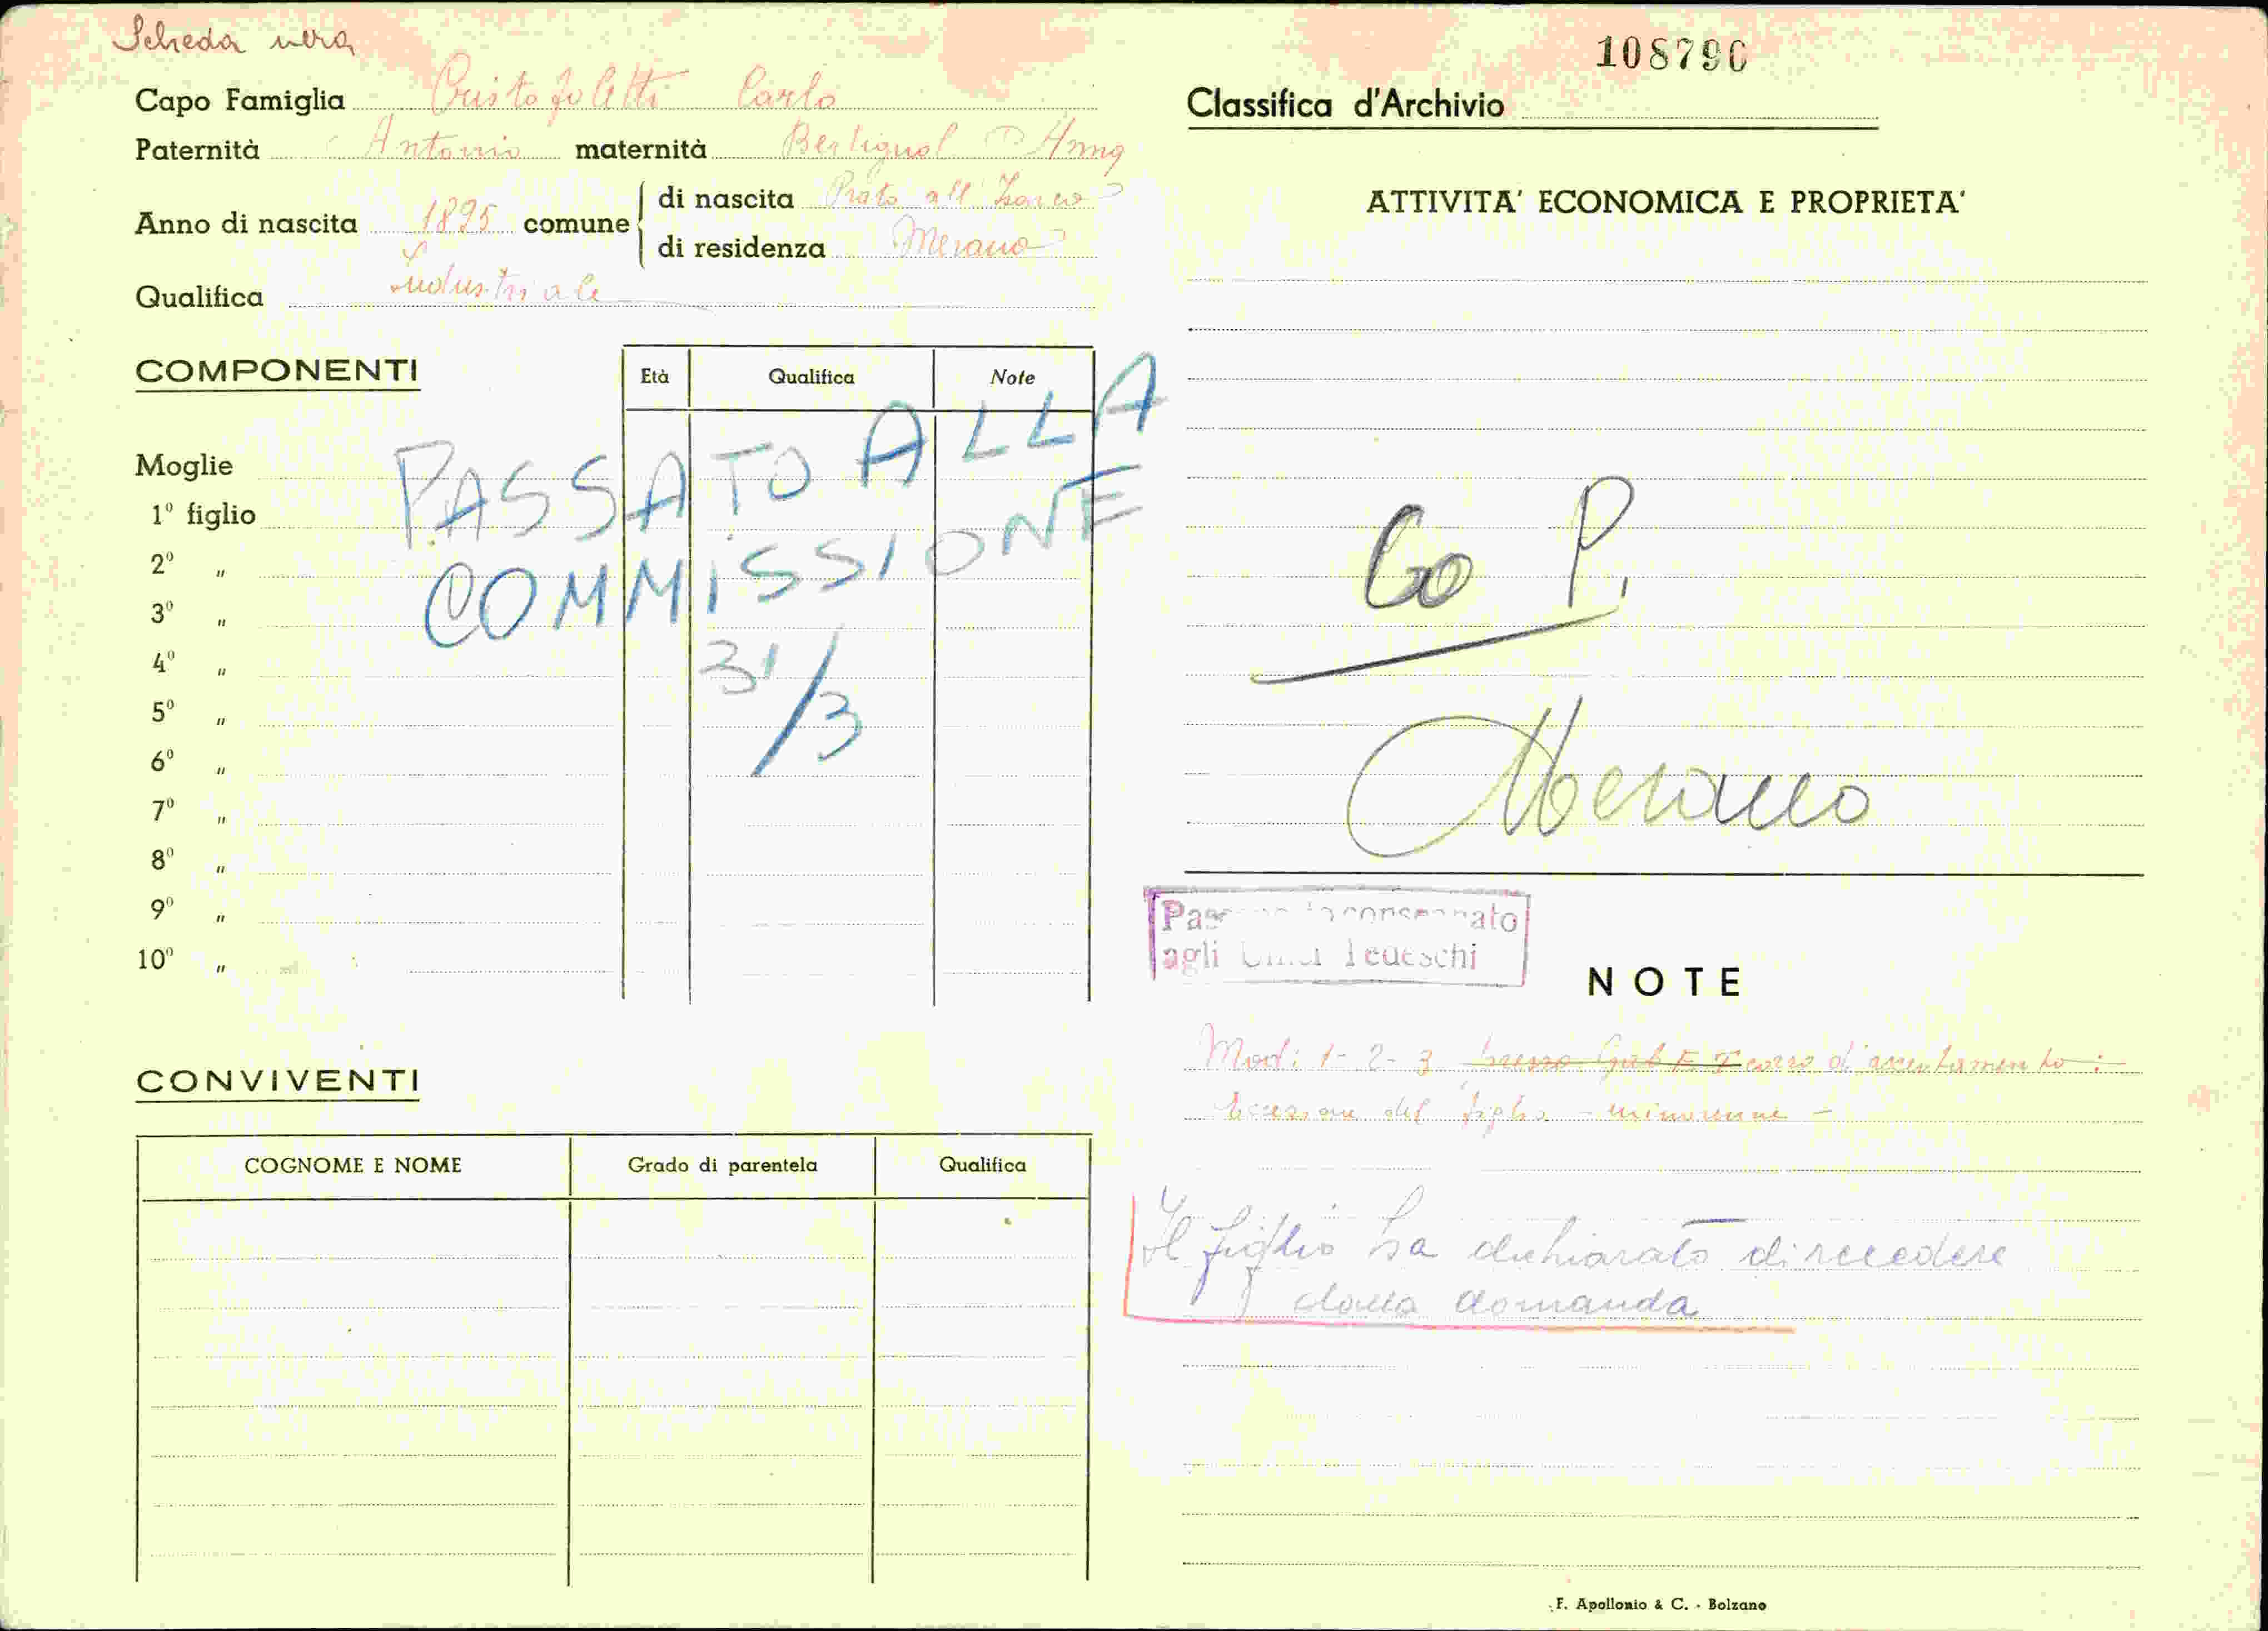 Scheda nera
Capo Famiglia Cristofoletti Carlo
Paternità Antonio maternità Bertignol Anna
Anno di nascita 1895 comune di nascita Prato all'Isarco
di residenza Merano
Qualifica Industriale
COMPONENTI
Età Qualifica Note
Moglie
1º figlio
2º "
3º "
4º "
5º "
6º "
7º "
8º "
9º "
10º "
PASSATO ALLA
COMMISSIONE
31/3
CONVIVENTI
COGNOME E NOME Grado di parentela Qualifica
108790
Classifica d'Archivio
ATTIVITA' ECONOMICA E PROPRIETA'
Co P.
Merano
agli Tedeschi
NOTE
Mod: 1-2-3 corso d'accertamento:
del figlio - minorenne -
Il figlio ha dichiarato di recedere
dalla domanda
F. Apollonio & C. - Bolzano